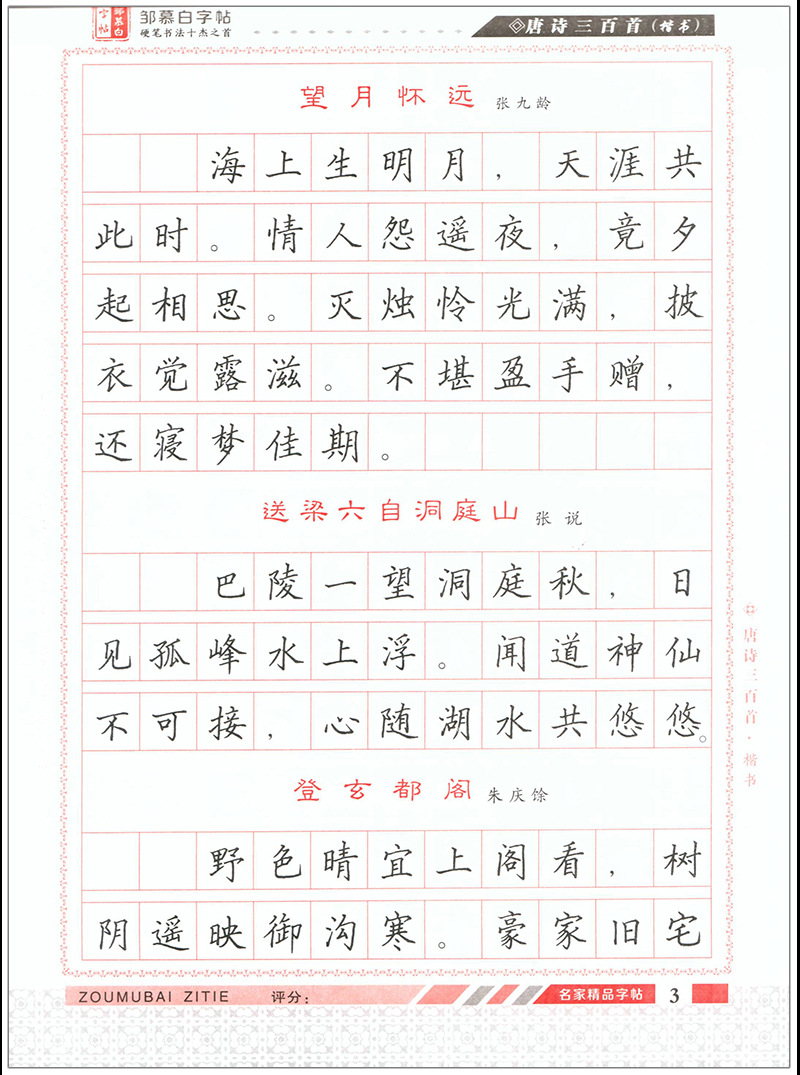 邹慕白
字帖
邹慕白字帖
硬笔书法十杰之首
唐诗三百首（楷书）
望月怀远 张九龄
海上生明月，天涯共
此时。情人怨遥夜，竟夕
起相思。灭烛怜光满，披
衣觉露滋。不堪盈手赠，
还寝梦佳期。
送梁六自洞庭山 张说
巴陵一望洞庭秋，日
见孤峰水上浮。闻道神仙
不可接，心随湖水共悠悠。
登玄都阁 朱庆馀
野色晴宜上阁看，树
阴遥映御沟寒。豪家旧宅
唐诗三百首·楷书
ZOUMUBAI ZITIE 评分：
名家精品字帖 3